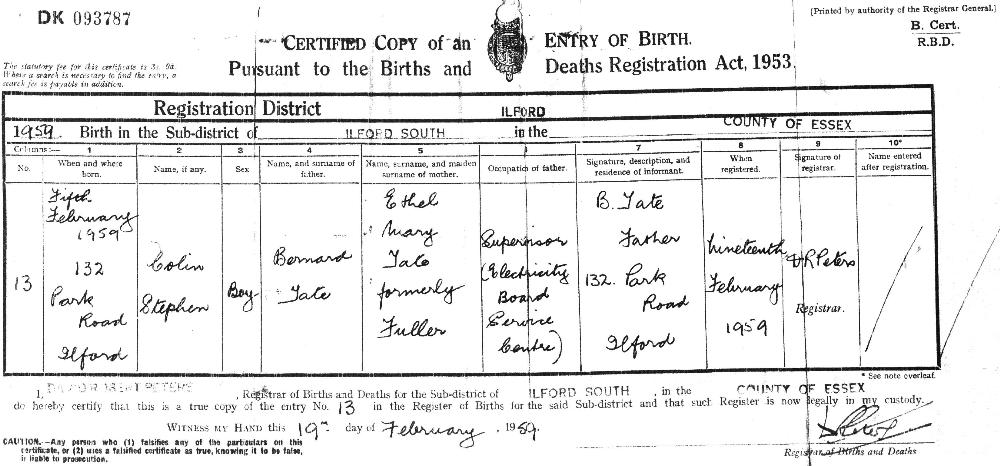 DK 093787
[Printed by authority of the Registrar General.]
B. Cert.
R.B.D.
CERTIFIED COPY OF AN ENTRY OF BIRTH.
Pursuant to the Births and Deaths Registration Act, 1953
The statutory fee for this certificate is 3s. 9d.
Where a search is necessary to find the entry, a
search fee is payable in addition.
Registration District ILFORD
1959. Birth in the Sub-district of ILFORD SOUTH in the COUNTY OF ESSEX
Columns:— 1 2 3 4 5 6 7 8 9 10*
No.
When and where born.
Name, if any.
Sex
Name, and surname of father.
Name, surname, and maiden surname of mother.
Occupation of father.
Signature, description, and residence of informant.
When registered.
Signature of registrar.
Name entered after registration.
13
Fifth
February
1959
132
Park
Road
Ilford
Colin
Stephen
Boy
Bernard
Tate
Ethel
Mary
Tate
formerly
Fuller
Supervisor
(Electricity
Board
Service
Centre)
B. Tate
Father
132. Park
Road
Ilford
Nineteenth
February
1959
Peters
Registrar.
* See note overleaf.
I, PETERS, Registrar of Births and Deaths for the Sub-district of ILFORD SOUTH, in the COUNTY OF ESSEX
do hereby certify that this is a true copy of the entry No. 13 in the Register of Births for the said Sub-district and that such Register is now legally in my custody.
WITNESS MY HAND this 19th day of February, 1959.
Registrar of Births and Deaths
CAUTION.—Any person who (1) falsifies any of the particulars on this
certificate, or (2) uses a falsified certificate as true, knowing it to be false,
is liable to prosecution.